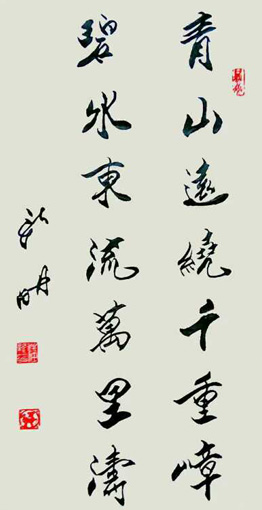 青山遠繞千重嶂
碧水東流萬里濤